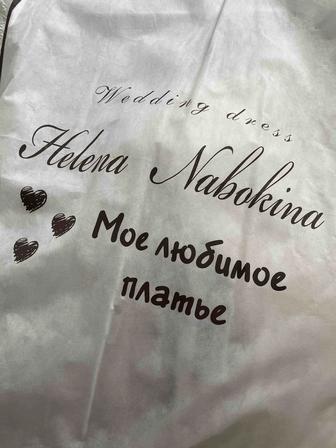 Wedding dress
Helena Nabokina
Мое любимое
платье